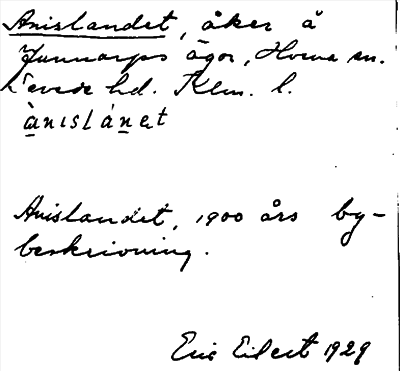 Anislandet, åker å
Junnarps ägor, Hvena sn.
Sevede hd. Klm. l.
ànıslánet
Anislandet, 1900 års by-
beskrivning.
Eric Eilert 1929